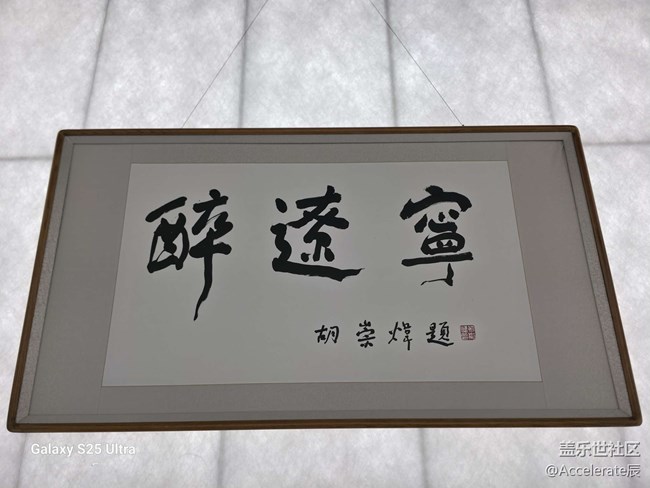 醉遼寧
胡崇煒題
Galaxy S25 Ultra
盖乐世社区
@Accelerate辰